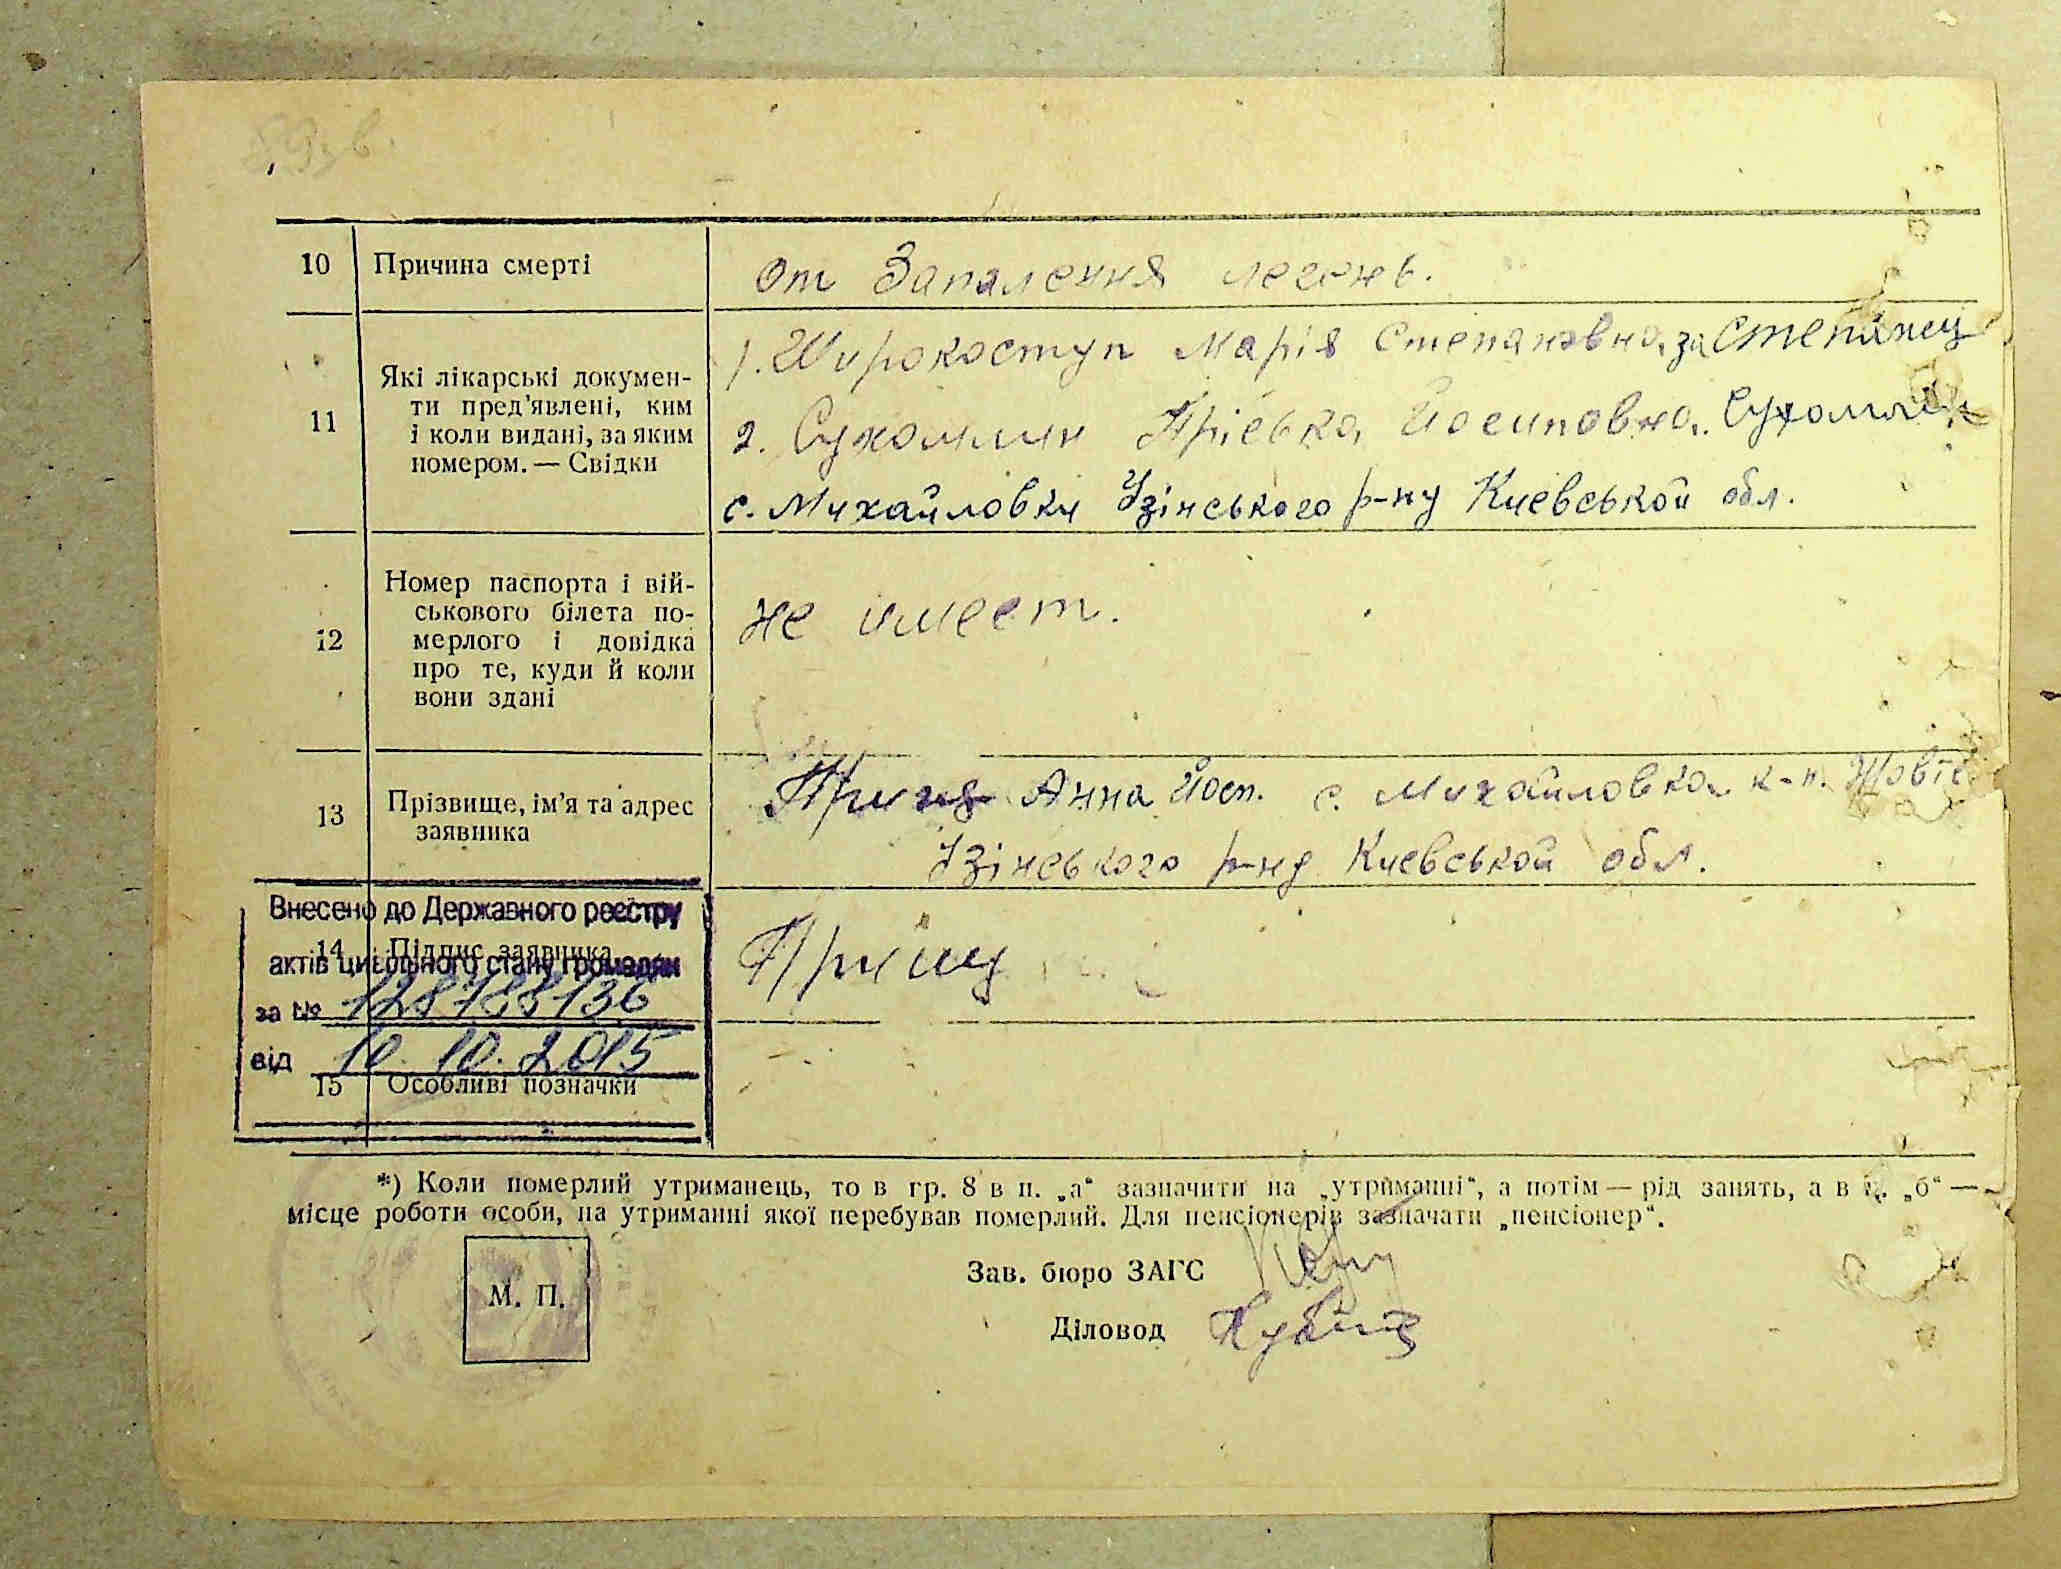 10 Причина смерті от Запалення легень.
1. Широкоступ Марія Степановна, за Степанец
Які лікарські докумен-
ти пред'явлені, ким
11 і коли видані, за яким
номером. — Свідки
2. Сухомлин Пріська, Йосиповна. Сухомлин
с. Михайловки Узінського р-ну Киевськой обл.
Номер паспорта і вій-
ськового білета по-
12 мерлого і довідка
про те, куди й коли
вони здані
не имеет.
13 Прізвище, ім'я та адрес
заявника
Анна Йосп. с. Михайловка к-п.
Узінського р-ну Киевськой обл.
14 Підпис заявника
Внесено до Державного реєстру
актів цивільного стану громадян
за № 128788136
від 10.10.2015
15 Особливі позначки
*) Коли померлий утриманець, то в гр. 8 в п. „а“ зазначити на „утриманні“, а потім — рід занять, а в п. „б“ —
місце роботи особи, на утриманні якої перебував померлий. Для пенсіонерів зазначати „пенсіонер“.
М. П.
Зав. бюро ЗАГС
Діловод